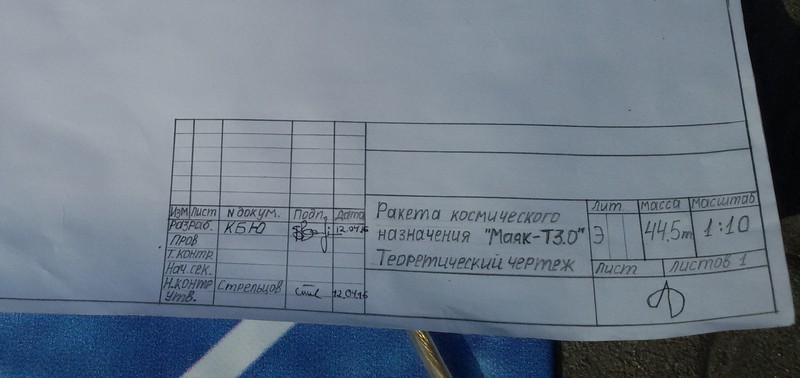 Изм Лист N докум. Подп. Дата
Разраб. КБЮ 12.04.16
Пров
Т.контр
Нач сек.
Н.контр Стрельцов 12.04.16
Утв.
Ракета космического
назначения "Маяк-Т3.0"
Теоретический чертеж
Лит. Масса Масштаб
Э 44.5т 1:10
Лист Листов 1